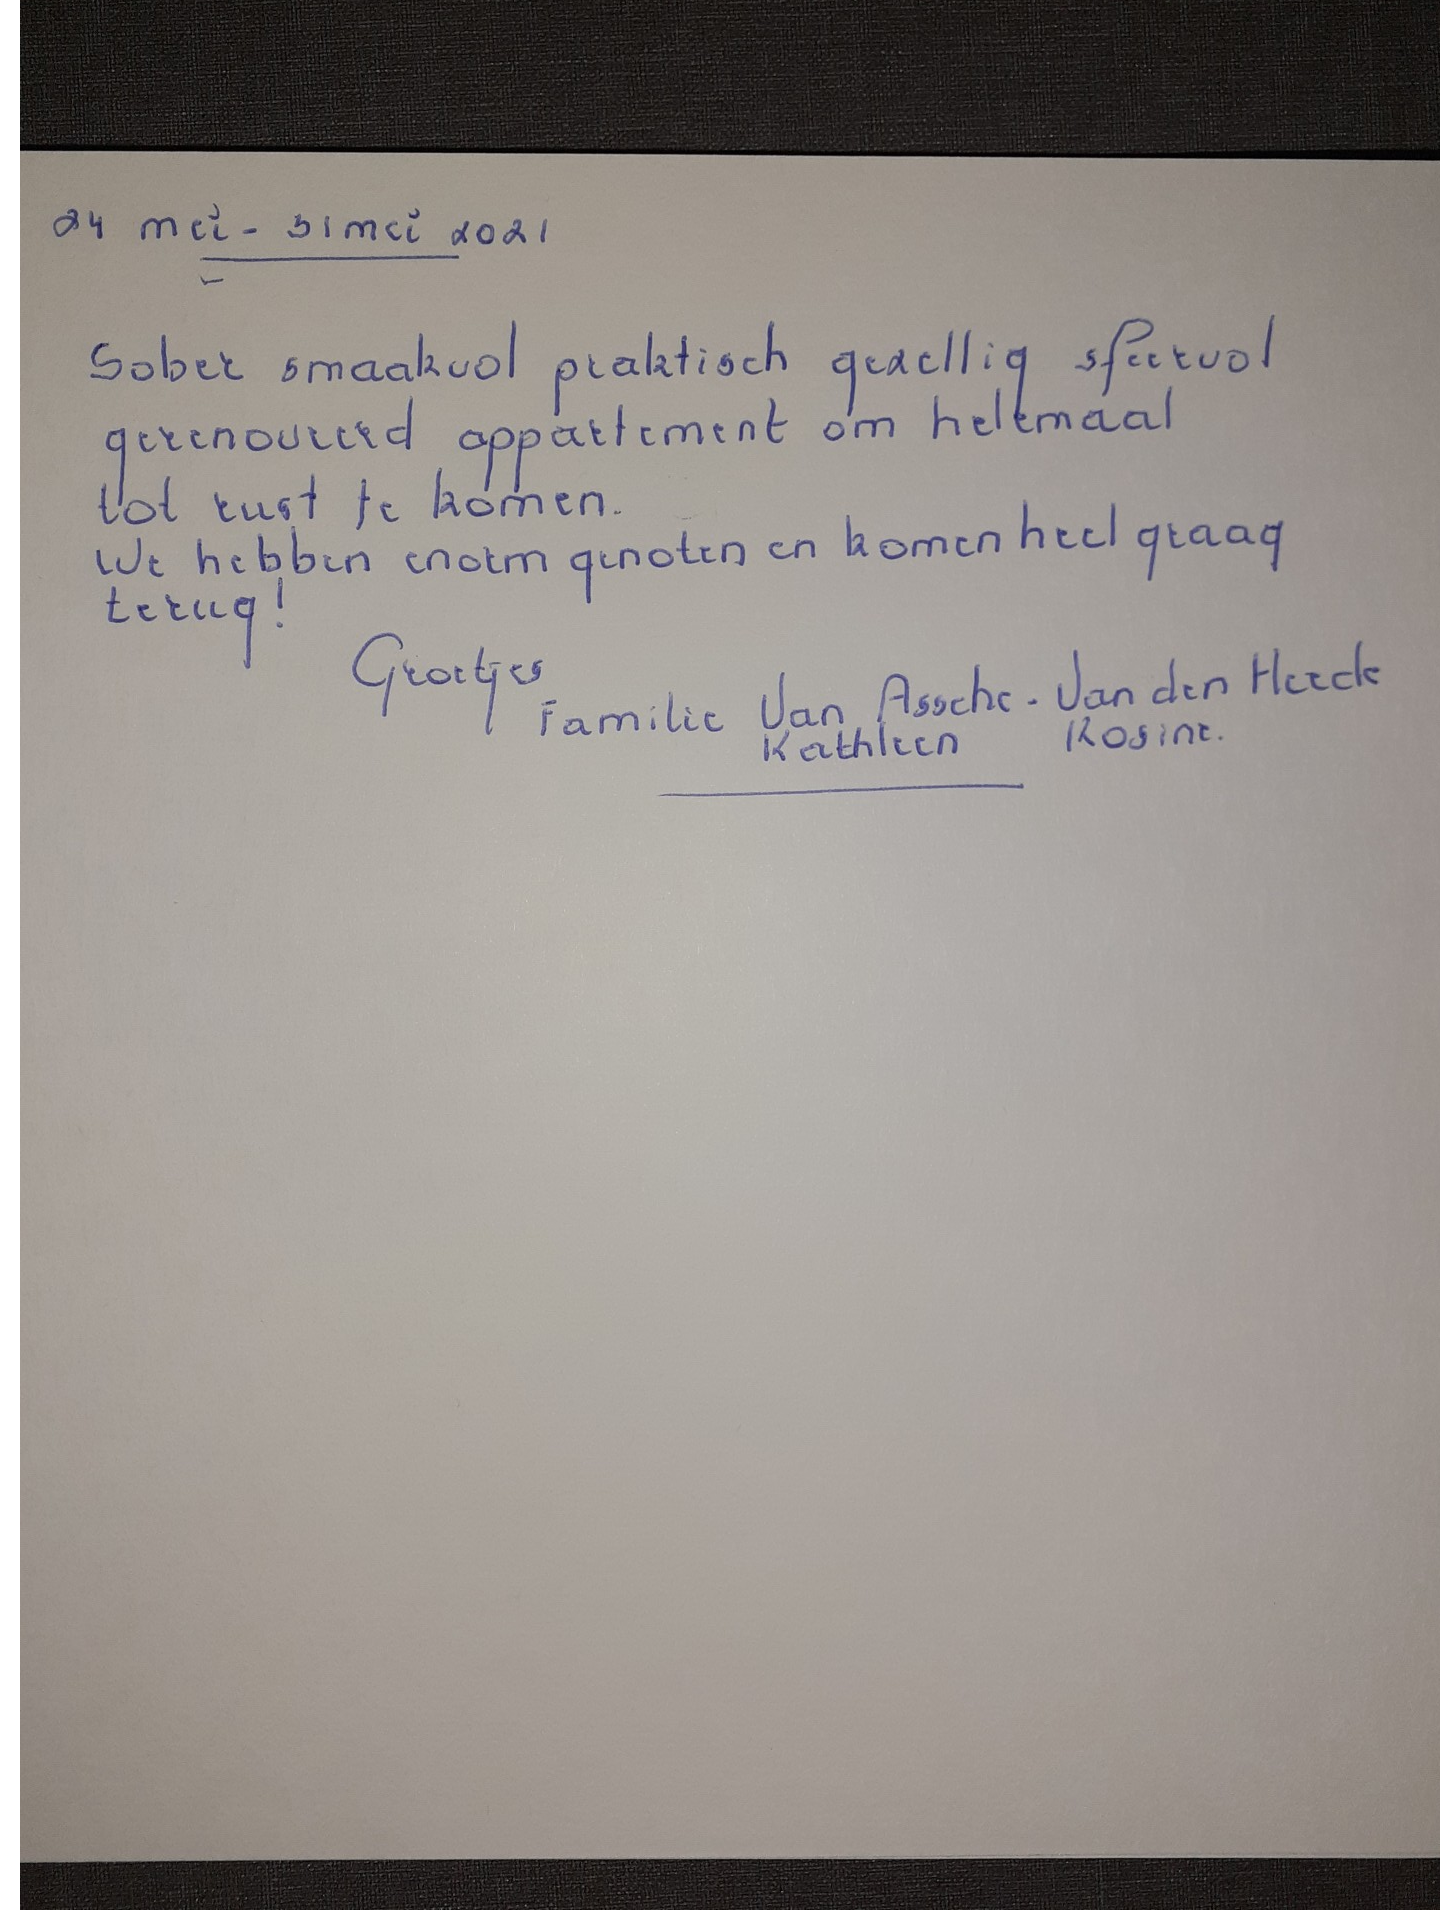 24 mei - 31 mei 2021
Sober smaakvol praktisch gezellig sfeervol
gerenoveerd appartement om helemaal
tot rust te komen.
We hebben enorm genoten en komen heel graag
terug!
Groetjes
Familie Van Assche - Van den Heede
Kathleen Rosine.